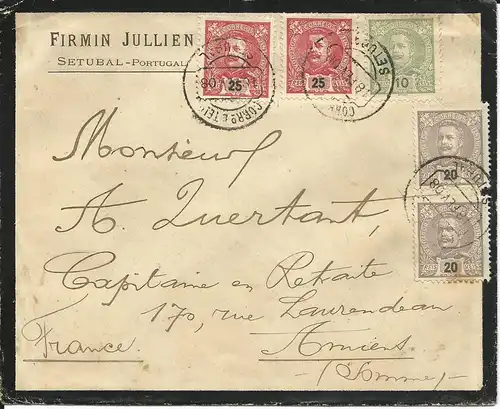 FIRMIN JULLIEN
SETUBAL-PORTUGAL
25
25
10
20
20
CORRO E TELEG
SETUBAL
Monsieur
A. Quertant,
Capitaine en Retraite
170, rue Laurendeau
Amiens
(Somme)
France